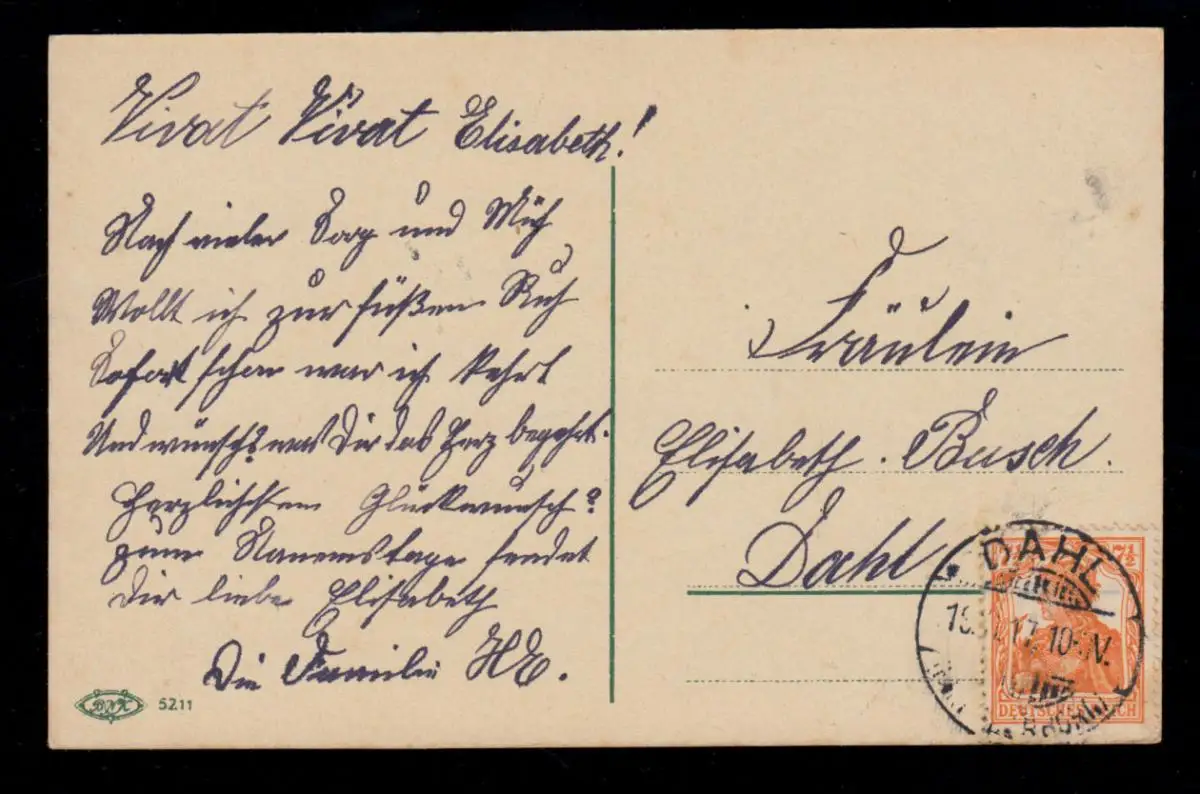 Vivat Vivat Elisabeth!
Nach vieler Sorg und Müh
Wollt ich zur süßen Ruh
Sofort schon war ich kehrt
Und wünsch was Dir das Herz begehrt.
Herzlichsten Glückwunsch
zum Namenstage sendet
Dir liebe Elisabeth
Die Familie HE.
5211
Fräulein
Elisabeth Busch.
Dahl
DAHL
17. 10-
7½
DEUTSCHES REICH